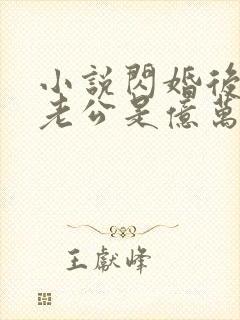 小說閃婚後
老公是億萬
王獻峰